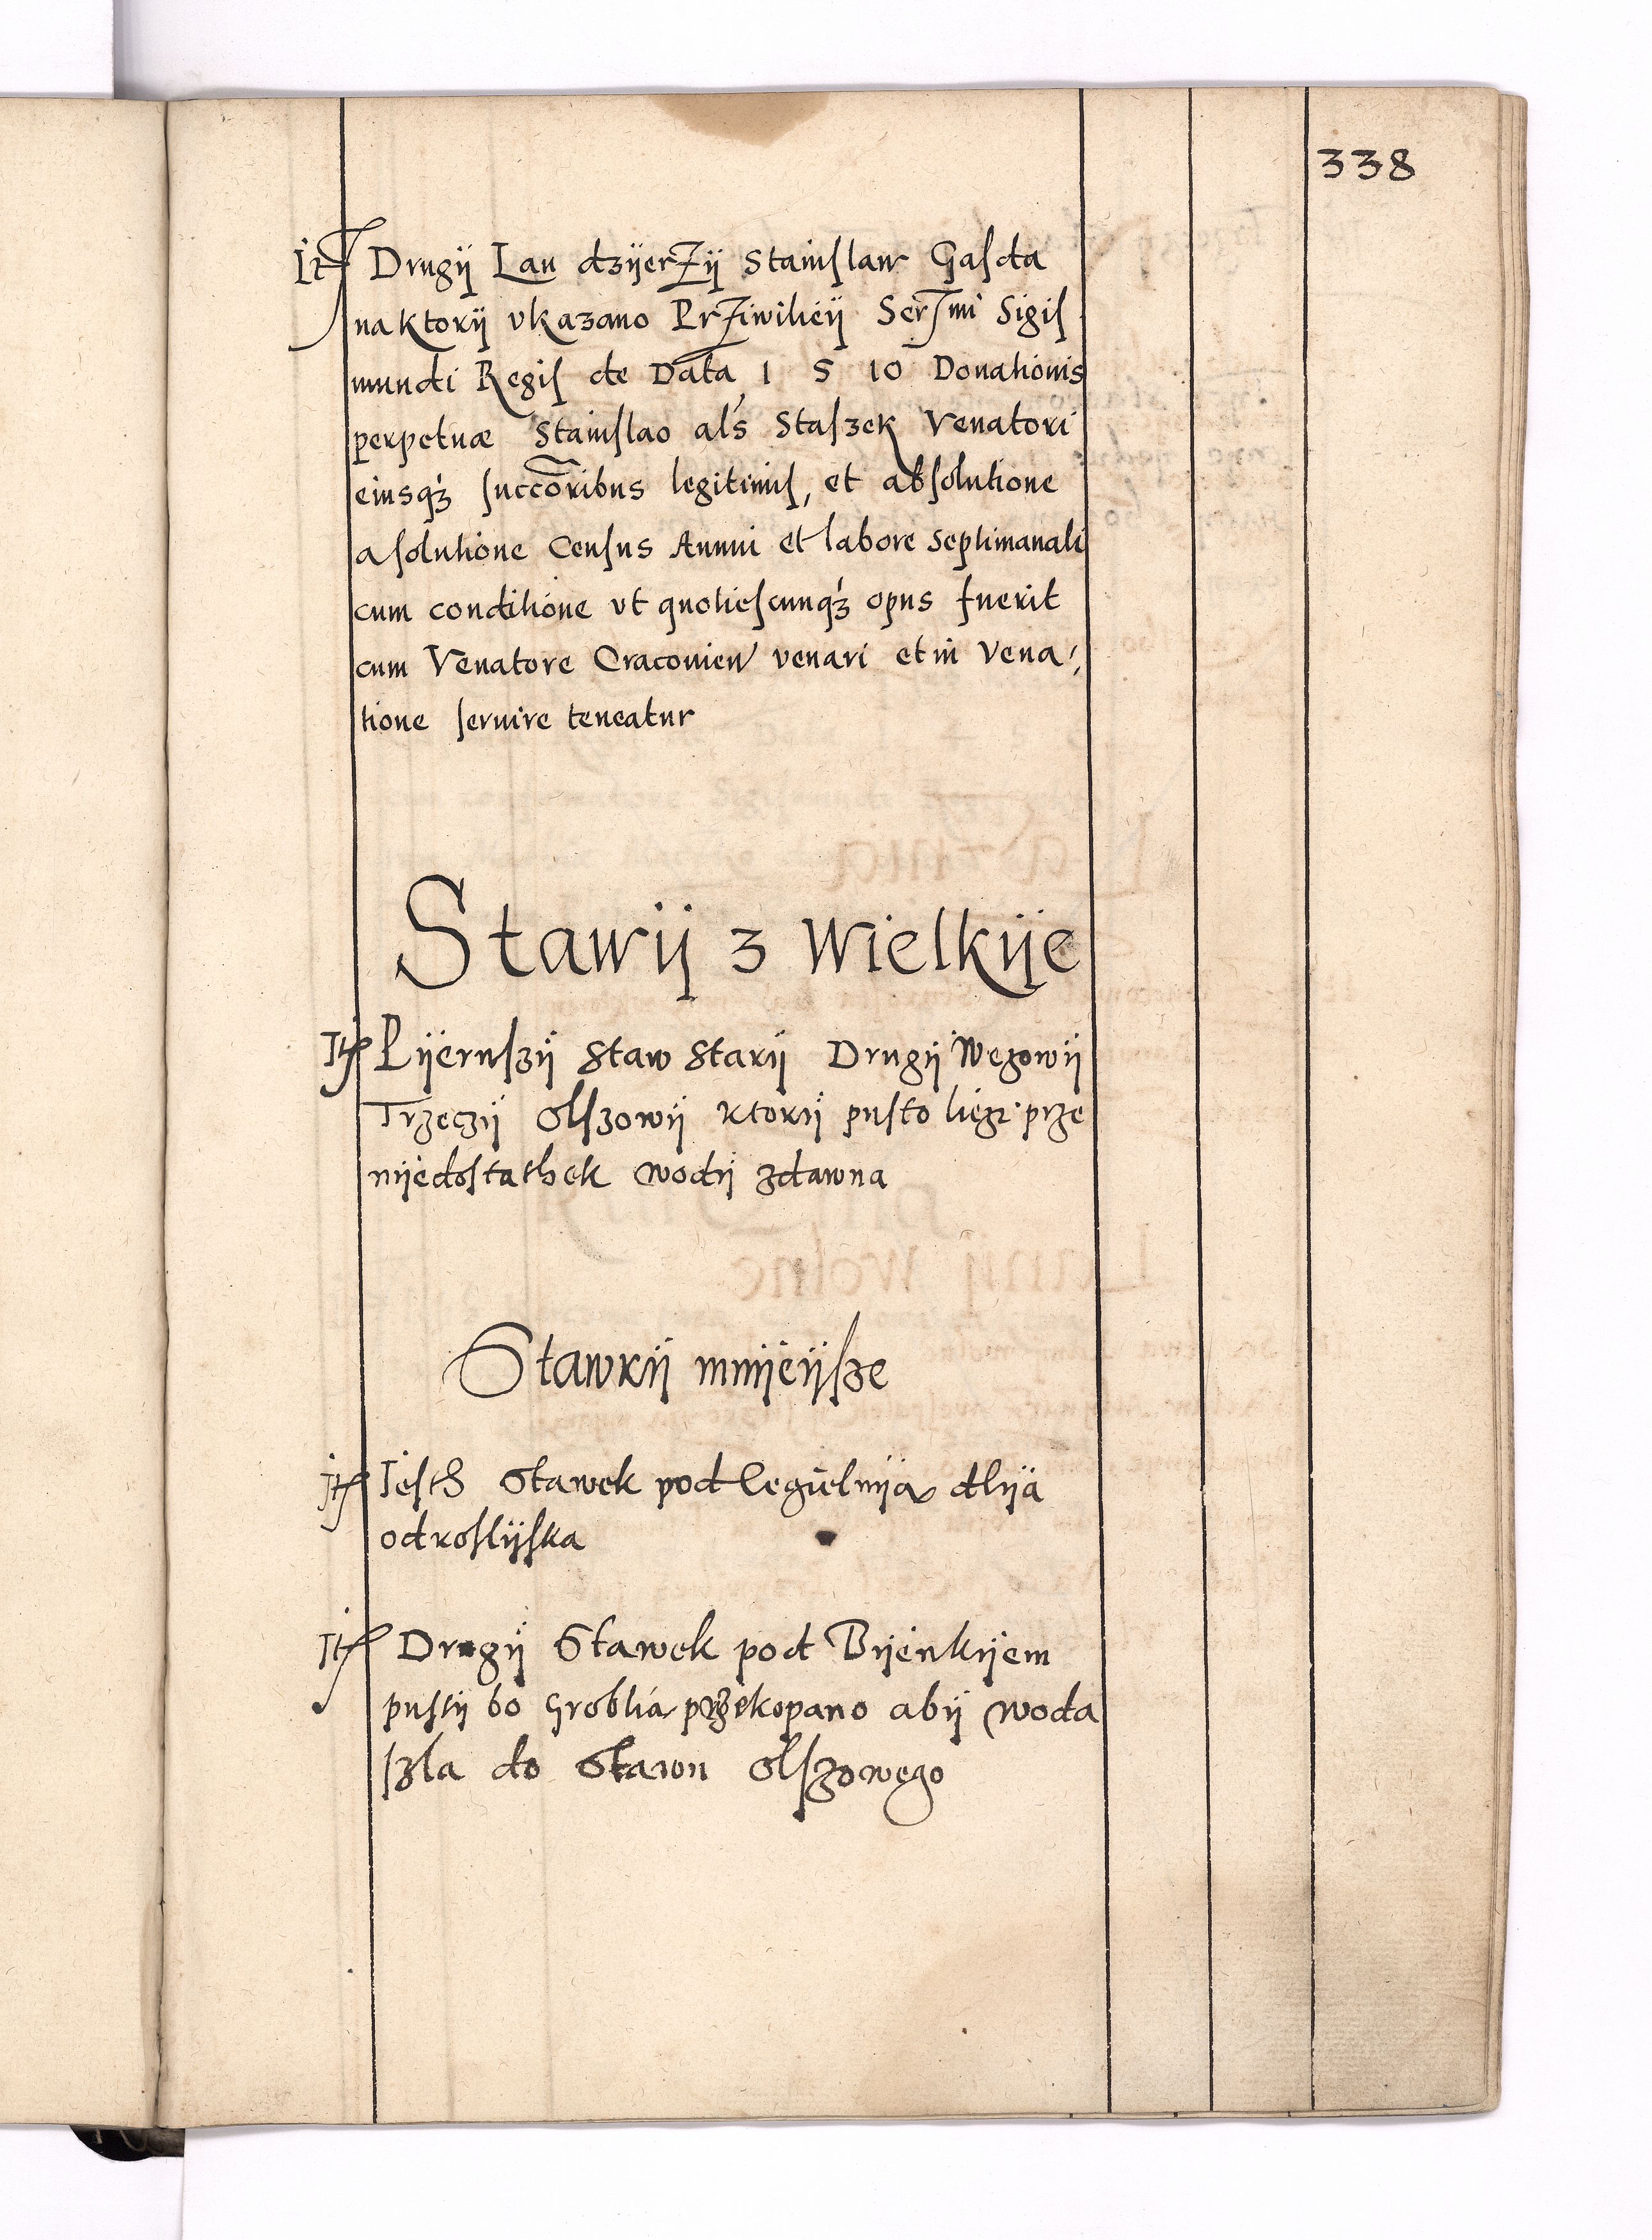 338
It Drugÿ Lan dzÿerzÿ Stanislaw Gasda
na Ktorÿ vkazano Przÿwilieÿ Sermi Sigis
mundi Regis de Data 1 5 10 Donationis
perpetuæ Stanislao als Staszek Venatori
eiusqz succoribus legitimis, et absolutione
a solutione Census Annui et labore Septimanali
cum conditione vt quotiescunqz opus fuerit
cum Venatore Cracouien venari et in Vena
tione seruire teneatur
Stawÿ 3 Wielkÿe
It Pÿerwszÿ Staw Starÿ Drugÿ Wegowÿ
Trzeczÿ Olszowÿ Ktorÿ pusto liezÿ prze
nÿedostathek wodÿ zdawna
Stawkÿ mnÿeÿsze
It Iesth Stawek pod Cegielnÿą dlÿa
odroslÿska
It Drugÿ Stawek pod Bÿenkÿem
pustÿ bo Groblią przekopano abÿ woda
szla do Stawu Olszowego